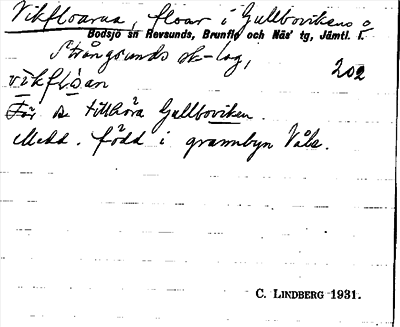 Vikfloarna, floar i Gullbovikens o
Bodsjö sn Revsunds, Brunflo och Näs' tg, Jämtl. l.
Strångsunds sk-lag,
202
vikflóan
För de tillhöra Gullboviken.
Medd. född i grannbyn Våle.
C. LINDBERG 1931.